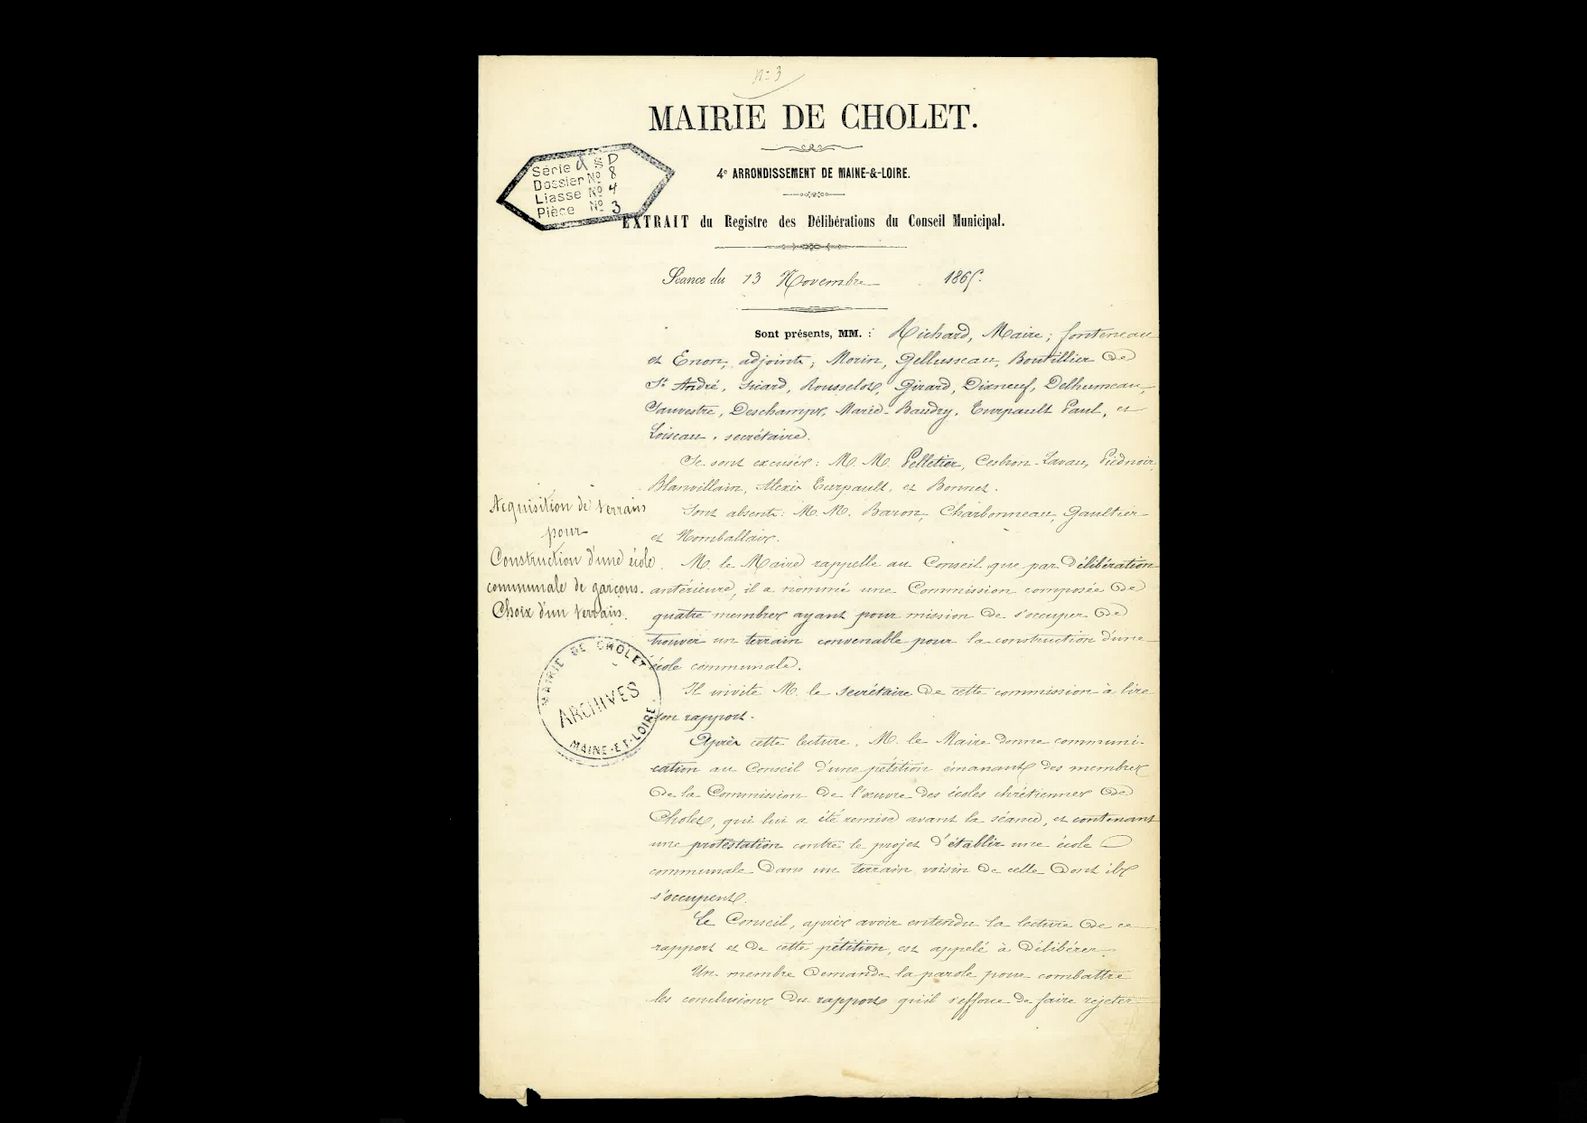 N° 3
MAIRIE DE CHOLET.
Série S D
Dossier N° 8
Liasse N° 4
Pièce N° 3
4e ARRONDISSEMENT DE MAINE-&-LOIRE.
EXTRAIT du Registre des Délibérations du Conseil Municipal.
Séance du 13 Novembre 1865.
Sont présents, MM. : Richard, Maire ; fonteneau
et Enon, adjoints ; Morin, Gellusseau, Boutillier de
St André, Sicard, Rousselot, Girard, Dixneuf, Delhumeau,
Sauvestre, Deschamps, Marie-Baudry, Turpault Paul, et
Loiseau, secrétaire.
Se sont excusés : M. M. Pelletier, Cesbron-Lavau, Piednoir,
Blanvillain, Alexis Turpault, et Bonnet.
Sont absents : M. M. Baron, Charbonneau, Gaultier
et
Acquisition de terrains
pour
Construction d'une école
communale de garçons.
Choix d'un terrain.
M. le Maire rappelle au Conseil que par délibération
antérieure, il a nommé une Commission composée de
quatre membres ayant pour mission de s'occuper de
trouver un terrain convenable pour la construction d'une
école communale.
Il invite M. le secrétaire de cette commission à lire
son rapport.
MAIRIE DE CHOLET
ARCHIVES
MAINE-ET-LOIRE
Après cette lecture, M. le Maire donne communi-
cation au Conseil d'une pétition émanant des membres
de la Commission de l'œuvre des écoles chrétiennes de
Cholet, qui lui a été remise avant la séance, et contenant
une protestation contre le projet d'établir une école
communale dans un terrain voisin de celle dont ils
s'occupent.
Le Conseil, après avoir entendu la lecture de ce
rapport et de cette pétition, est appelé à délibérer.
Un membre demande la parole pour combattre
les conclusions du rapport qu'il s'efforce de faire rejeter